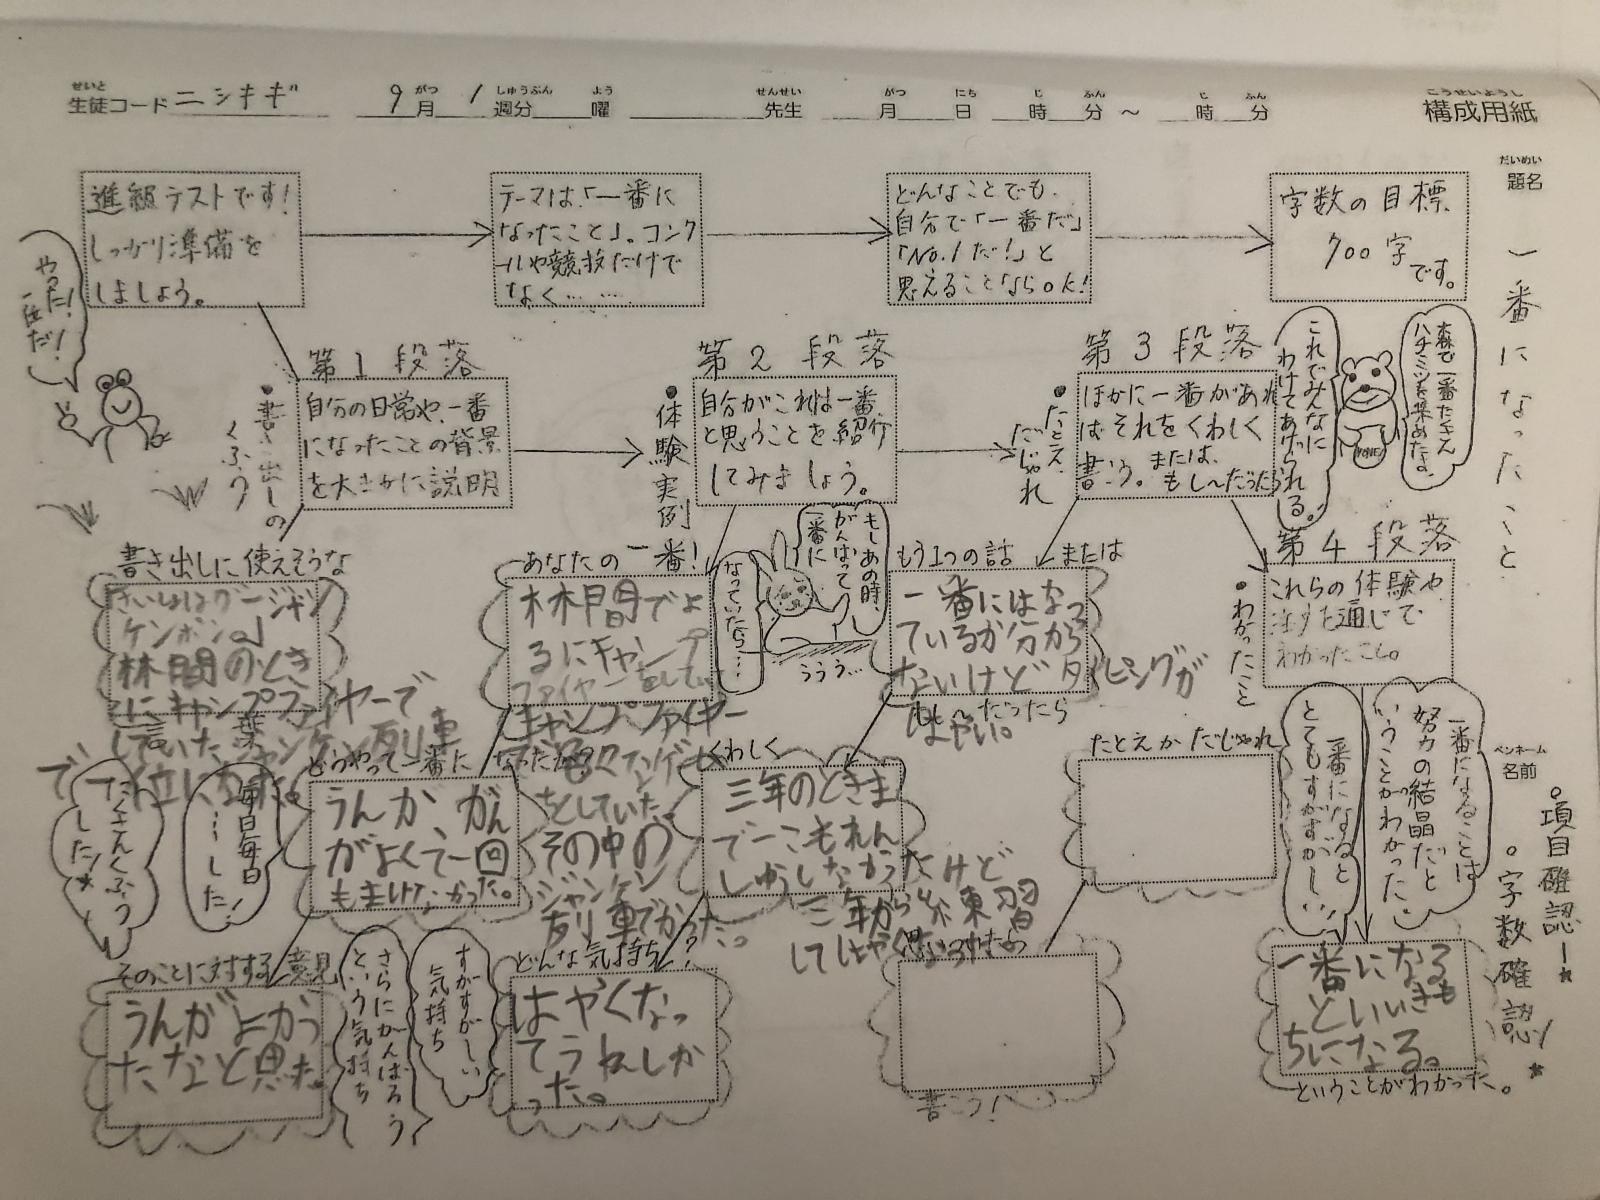 せいと
生徒コード ニシキギ 9月 1週分 曜 先生 月 日 時 分 〜 時 分
がつ しゅうぶん よう せんせい がつ にち じ ふん じ ふん
こうせいようし
構成用紙
だいめい
題名
一番になったこと
ペンネーム
名前
。項目確認!★
。字数確認!★
進級テストです!
しっかり準備を
しましょう。
テーマは、「一番に
なったこと」。コンク
ールや競技だけで
なく……
どんなことでも、
自分で「一番だ」
「No.1だ!」と
思えることならOK!
字数の目標
700字
です。
やった!
一位だ!
第1段落
●書き出しの
くふう
自分の日常や、一番
になったことの背景
を大まかに説明
第2段落
●体験実例
自分がこれは一番
と思うことを紹介
してみましょう。
第3段落
●たとえ、
だじゃれ
ほかに一番があれ
ばそれをくわしく
書こう。または、
もし〜だったら
これでみんなに
わけてあげられる。
森で一番たくさん
ハチミツを集めたよ。
第4段落
●わかったこと
これらの体験や
を通じて
わかったこと。
書き出しに使えそうな
さいしょはグージャン
ケンポン。」
林間のとき
にキャンプファイヤーで
ジャンケン列車
あなたの一番!
林間でよ
るにキャンプ
ファイヤーをしていて
キャンプファイヤー
をしていた。
その中の
ジャンケン
列車でかった。
もしあの時、
がんばって
一番に
なっていたら…
ううう…
もう1つの話
一番にはなっ
ているか分から
ないけどタイピングが
はやい。
または
もし〜だったら
どうやって一番になったか?
うんか、かん
がよくて一回
もまけなかった。
毎日毎日
…した!
たくさんくふう
した!★
くわしく
三年のときま
で一こもれん
しゅうしなかったけど
三年から練習
してはやくなった
たとえかだじゃれ
そのことに対する意見
うんがよかっ
たなと思った。
さらにがんばろう
という気持ち
すがすがしい
気持ち
どんな気持ち?
はやくなっ
てうれしか
った。
書こう!
一番になると
とてもすがすがしい
一番になることは
努力の結晶だと
いうことがわかった
一番になる
といいきも
ちになる。
ということがわかった。